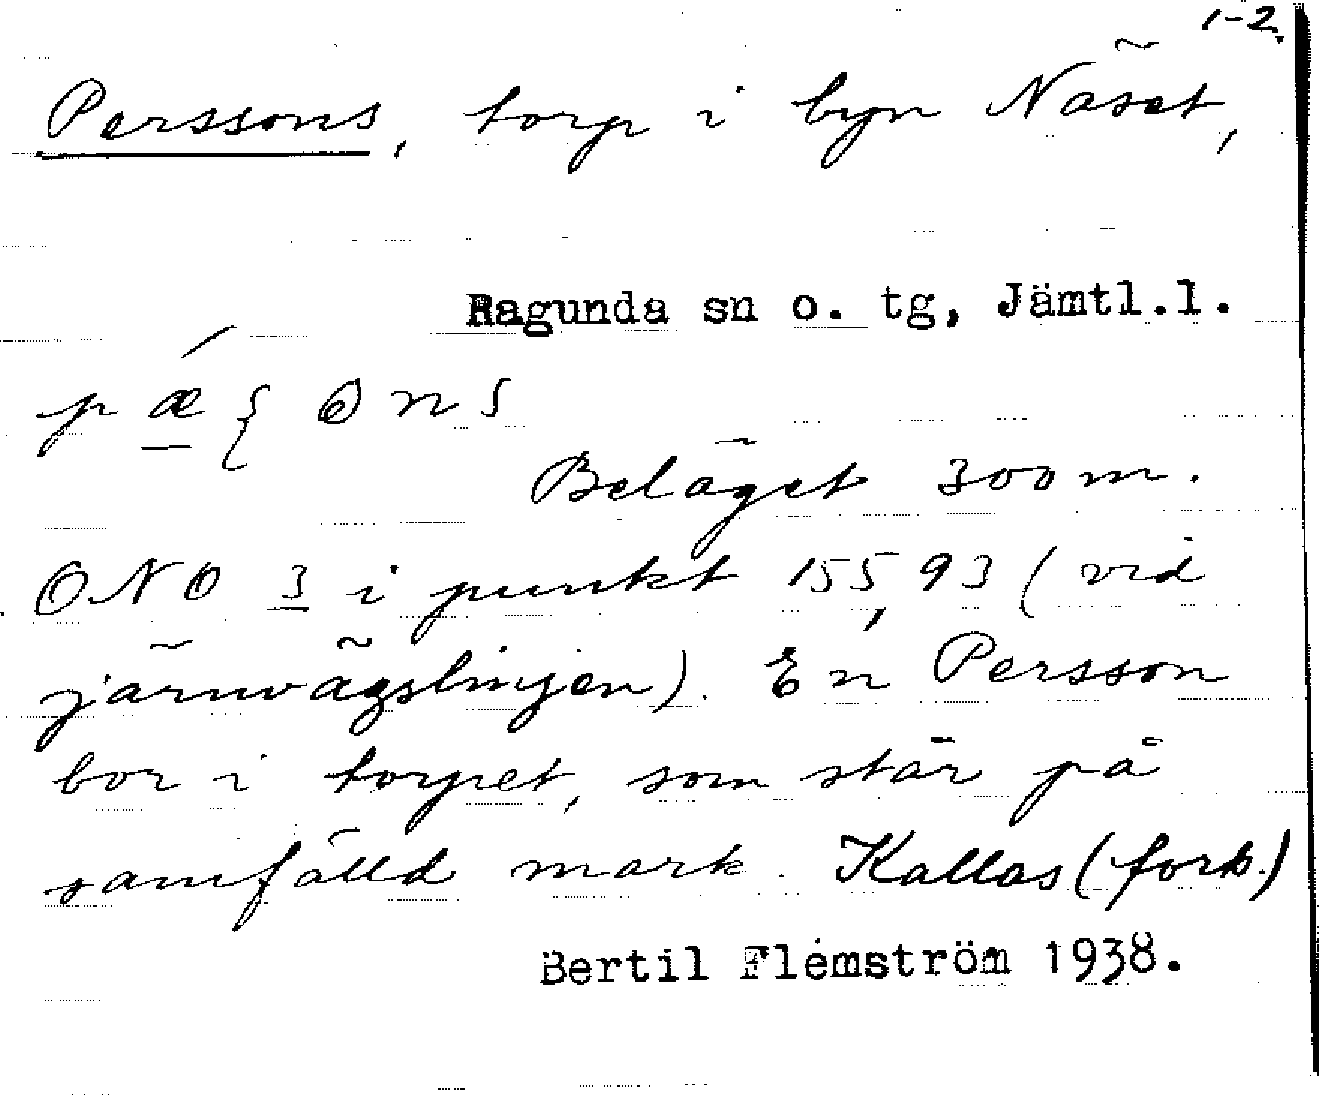 1-2.
Perssons, torp i byn Näset,
Ragunda sn o. tg, Jämtl.l.
Beläget 300 m.
ONO 3 i punkt 155,93 (vid
järnvägslinjen). En Persson
bor i torpet, som står på
samfälld mark. Kallas (forts.)
Bertil Flemström 1938.